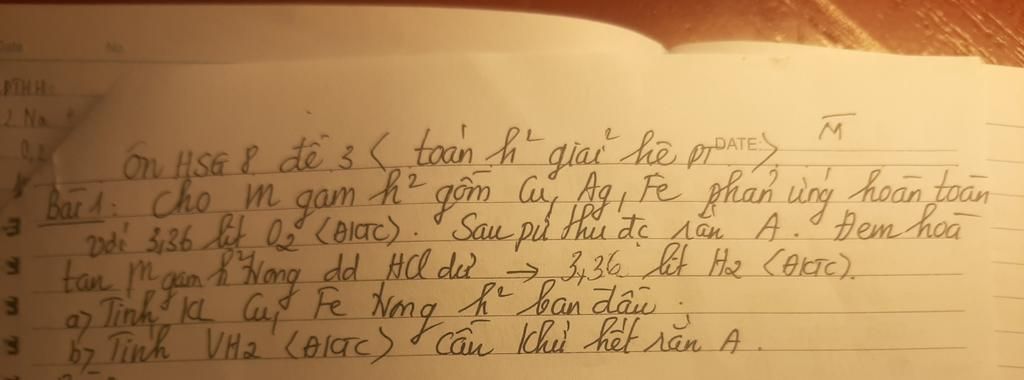 Date No.
PTHH:
2 Na
Ôn HSG 8 đề 3 < toán h² giải hệ pt DATE: > M̅
Bài 1: Cho m gam h² gồm Cu, Ag, Fe phản ứng hoàn toàn
với 3,36 lít O₂ (ĐKTC). Sau pứ thu đc rắn A. Đem hoà
tan m gam h² trong dd HCl dư → 3,36 lít H₂ (ĐKTC).
a) Tính KL Cu, Fe trong h² ban đầu.
b) Tính VH₂ (ĐKTC) cần khử hết rắn A.